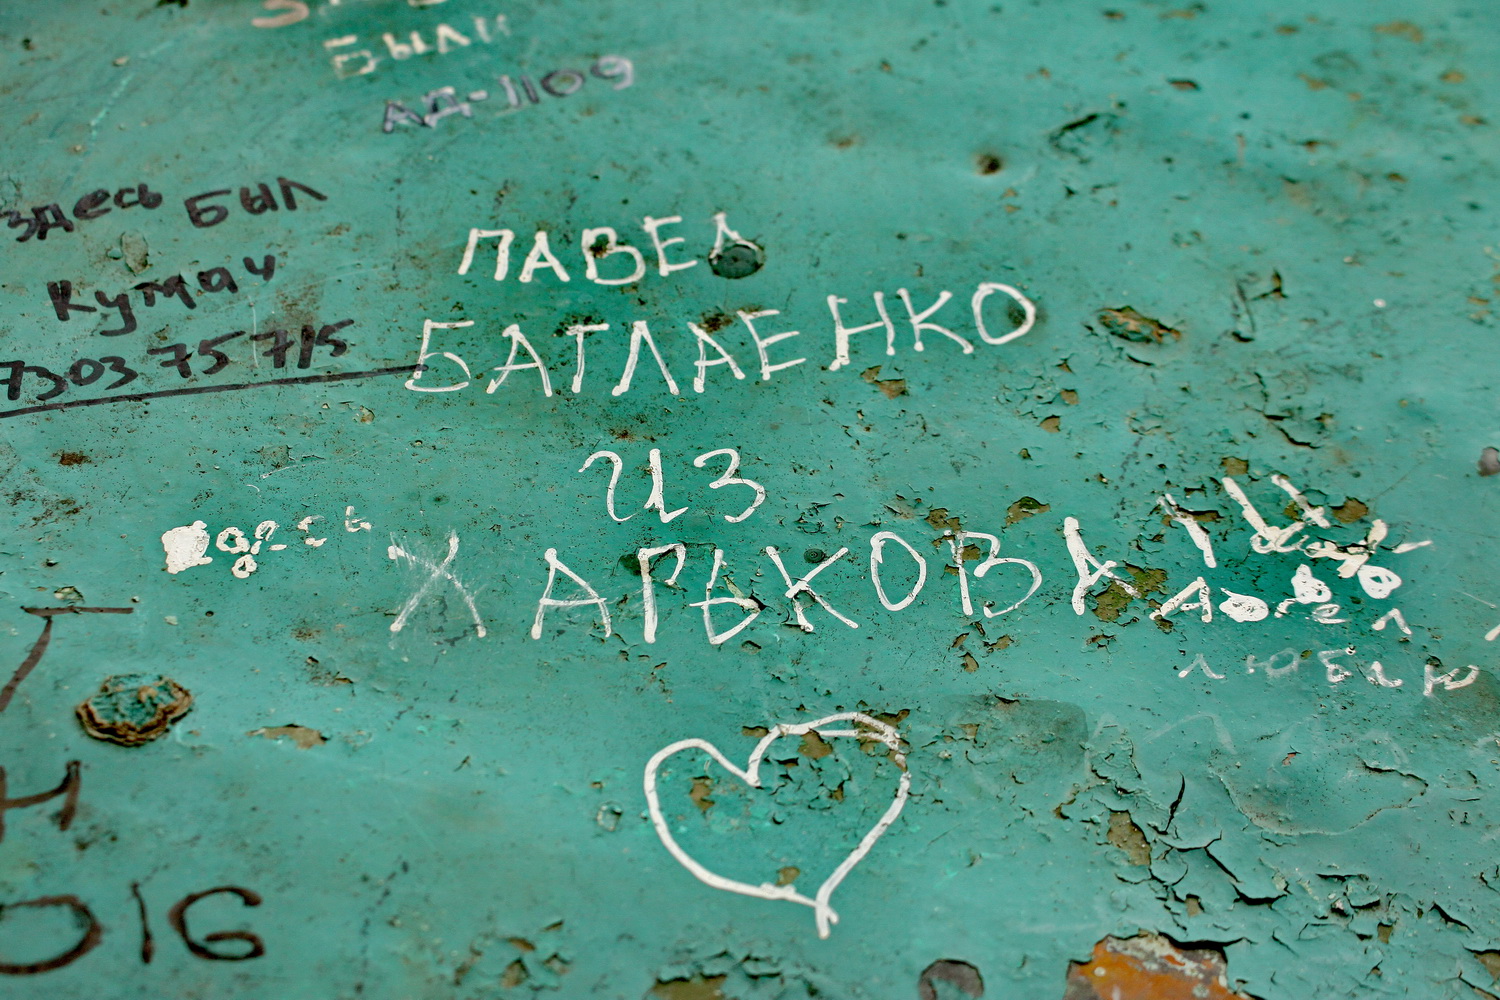 Были
АД-1109
здесь был
Кутач
7303 75 715
ПАВЕЛ
БАТЛАЕНКО
ИЗ
здесь
ХАРЬКОВА
люблю
016